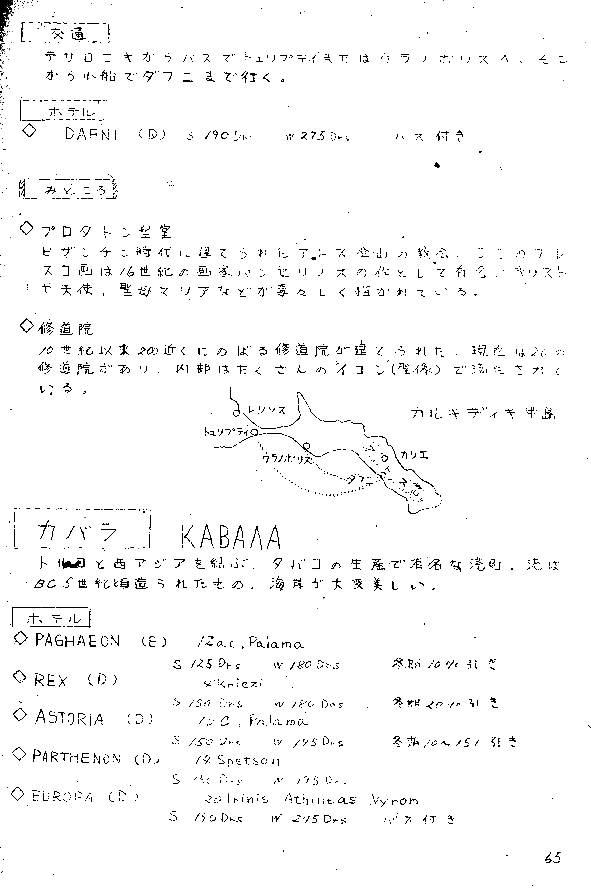 交通
テサロニキからバスでトュリプティまたはウラノポリスへ、そこ
から小船でダフニまで行く。
ホテル
◇ DAFNI (D) S 190 Drs W 275 Drs バス付き
みどころ
◇ プロタトン聖堂
ビザンチン時代に建てられたアトス全山の教会。ここのフレ
スコ画は16世紀の画家パンセリノスの作として有名。キリスト
や天使、聖母マリアなどが美々しく描かれている。
◇ 修道院
10世紀以来200近くにのぼる修道院が建てられた。現在は20の
修道院があり、内部はたくさんのイコン(聖像)で満たされて
いる。
カルキディキ半島
トュリプティ
カリエ
ウラノポリス
ダフニ
カバラ KABAΛA
と西アジアを結ぶ、タバコの生産で有名な港町。港は
BC5世紀頃造られたもの。海岸が大変美しい。
ホテル
◇ PAGHAEON (E) 12a.c, Palama
S 125 Drs W 180 Drs 冬期10%引き
◇ REX (D) 4 Kriezi
S 150 Drs W 180 Drs 冬期20%引き
◇ ASTORIA (D) Palama
S 150 Drs W 195 Drs 冬期 引き
◇ PARTHENON (D) 14 Spetson
W 195 Drs
◇ EUROPA (D) 20 Irinis Athineas Vyron
S 190 Drs W 245 Drs バス付き
65